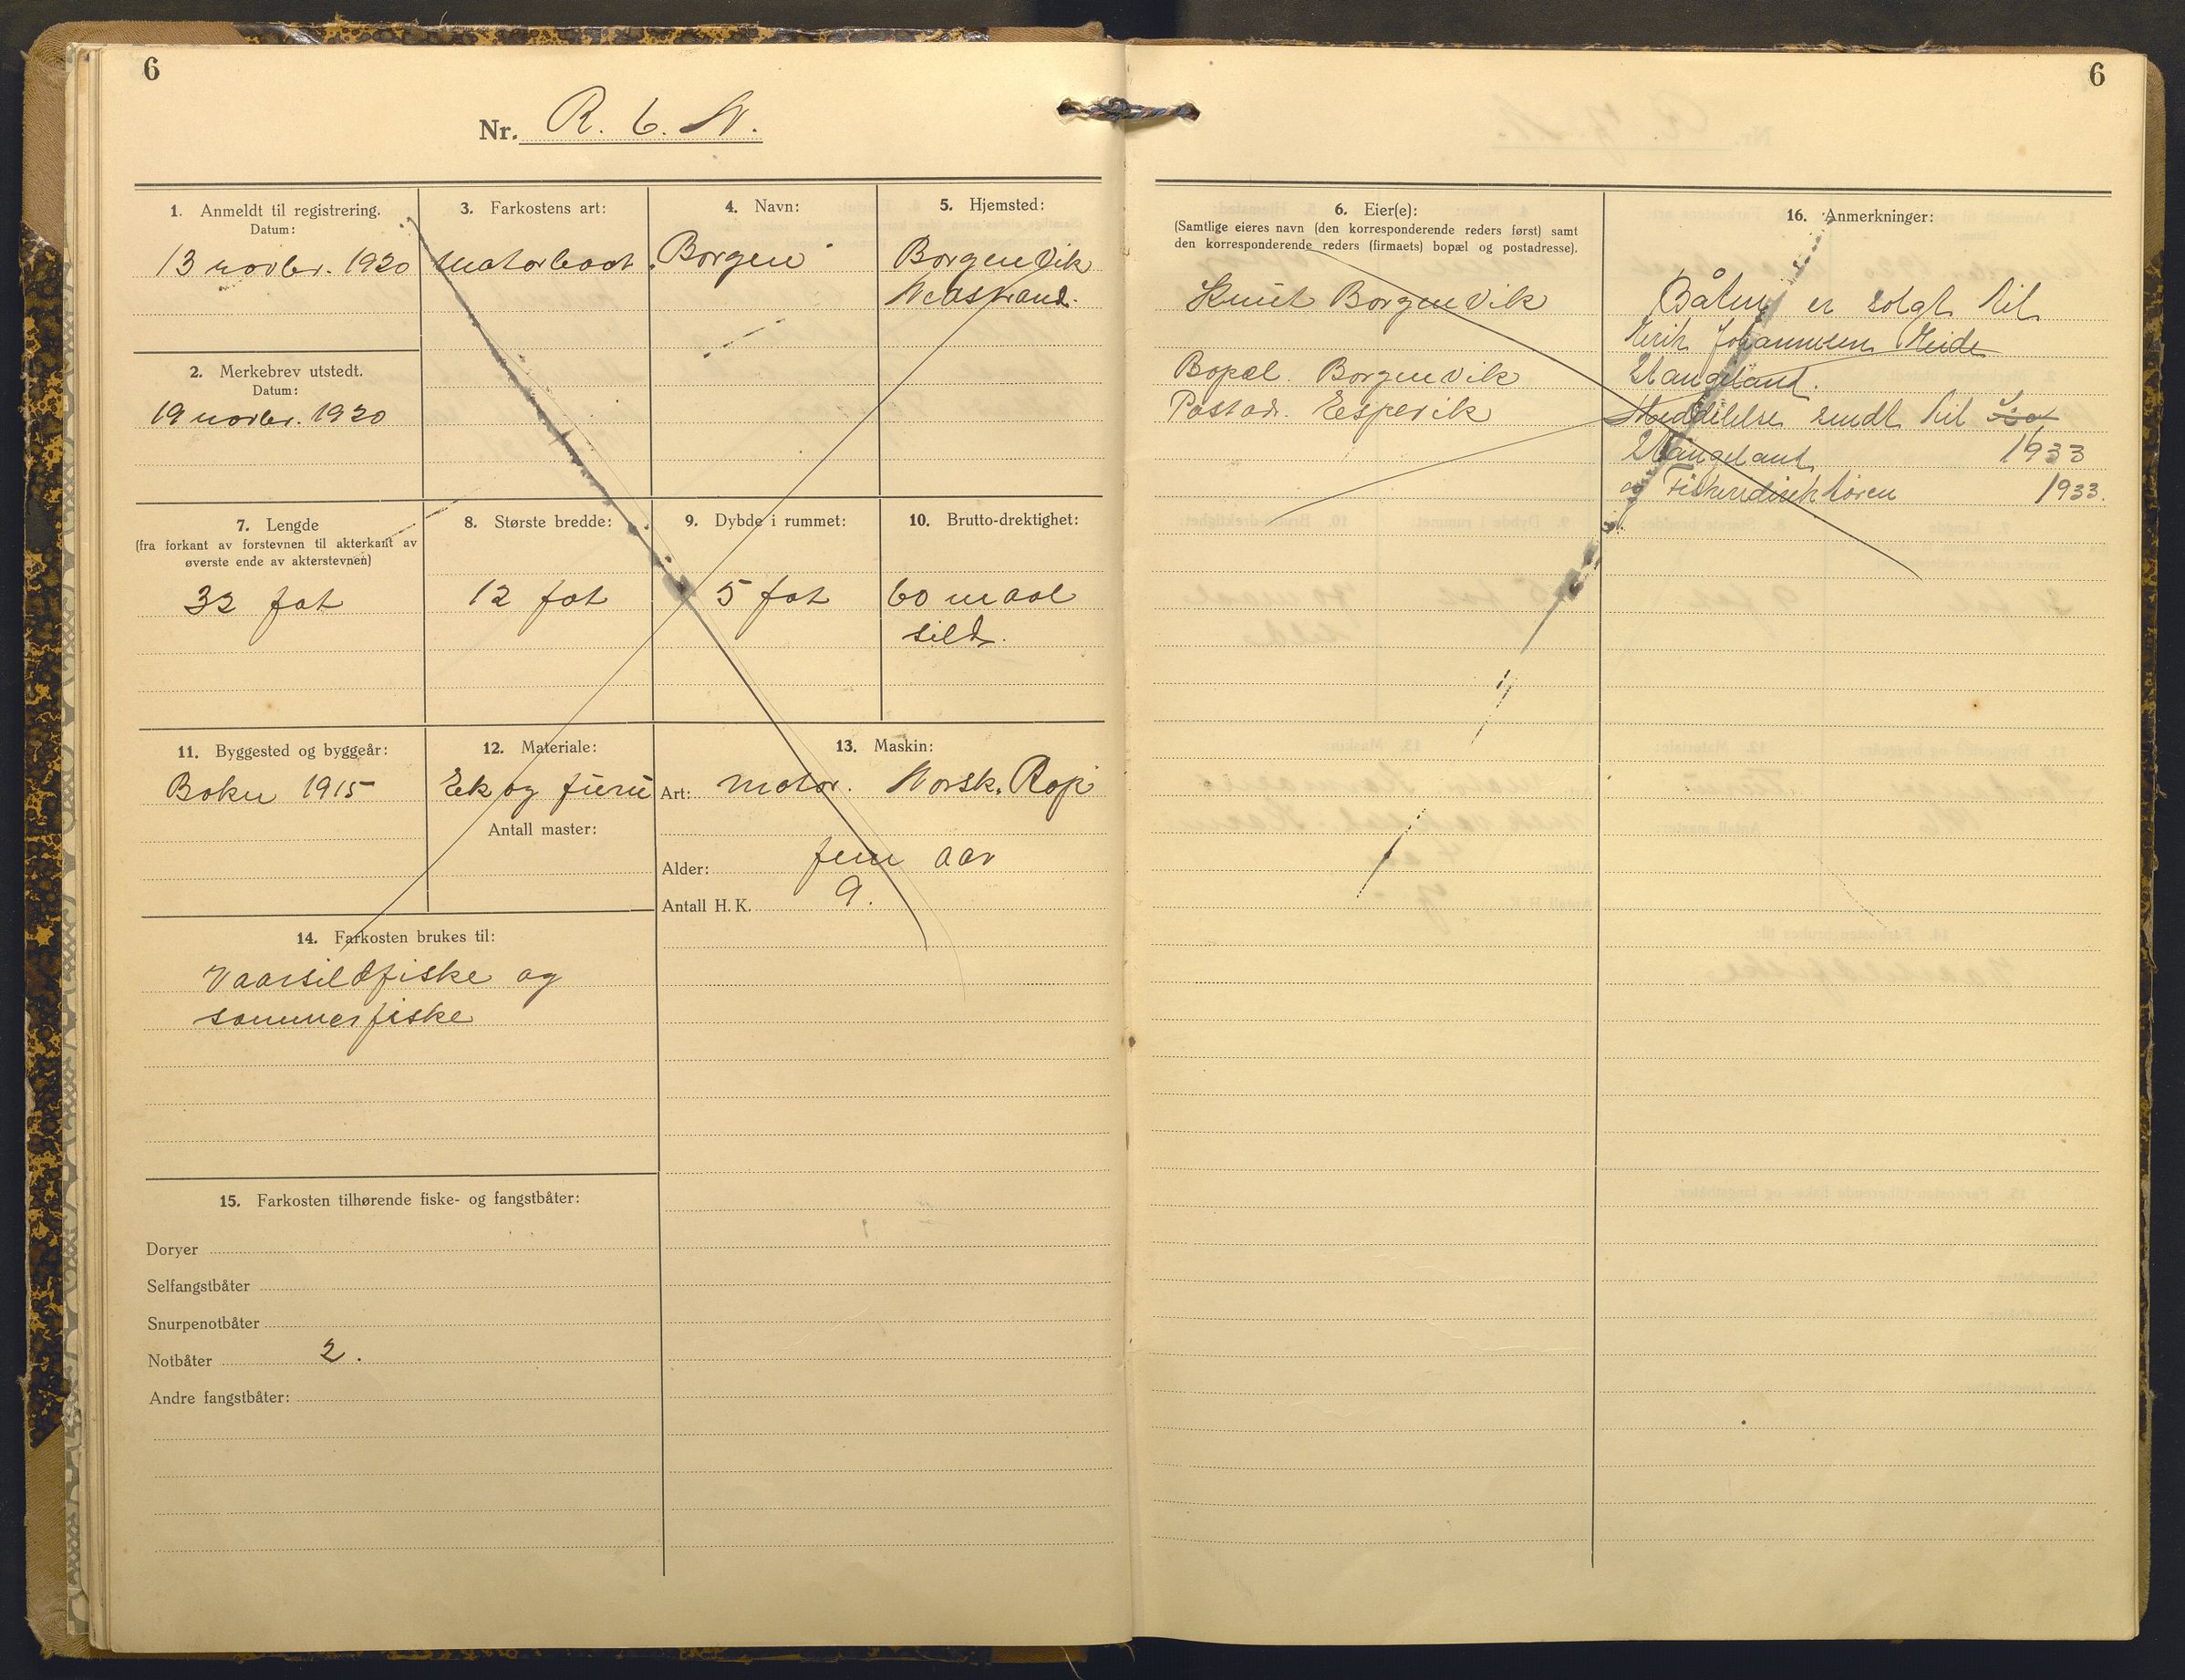 6
Nr. R. 6. N.
1. Anmeldt til registrering.
Datum:
13 novbr. 1920
2. Merkebrev utstedt.
Datum:
19 novbr. 1920
3. Farkostens art:
Motorbaat
4. Navn:
Borgen
5. Hjemsted:
Borgenvik
Nedstrand.
7. Lengde
(fra forkant av forstevnen til akterkant av
øverste ende av akterstevnen)
32 fot
8. Største bredde:
12 fot
9. Dybde i rummet:
5 fot
10. Brutto-drektighet:
60 maal
sild.
11. Byggested og byggeår:
Bokn 1915
12. Materiale:
Ek og furu
Antall master:
13. Maskin:
Art: motor. Norsk. Rap
Alder: fem aar
Antall H. K. 9.
14. Farkosten brukes til:
Vaarsildfiske og
sommerfiske
15. Farkosten tilhørende fiske- og fangstbåter:
Doryer
Selfangstbåter
Snurpenotbåter
Notbåter 2.
Andre fangstbåter:
6
6. Eier(e):
(Samtlige eieres navn (den korresponderende reders først) samt
den korresponderende reders (firmaets) bopæl og postadresse).
Knut Borgenvik
Bopæl. Borgenvik
Postadr. Espevik
16. Anmerkninger:
Båten er solgt til
Erik Johannesen Eide
Vangeland.
Meddelelse sendt til
Vangeland 1933
og Fiskeridirektøren 1933.